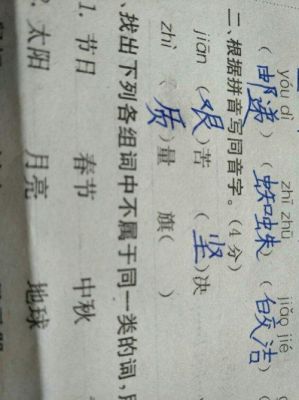 yóu dì zhī zhū jiǎo jié
(邮递) (蜘蛛) (皎洁)
二、根据拼音写同音字。(4分)
jiān (艰)苦 (坚)决
zhì (质)量 旗( )
、找出下列各组词中不属于同一类的词,
1. 节日 春节 中秋
2. 太阳 月亮 地球